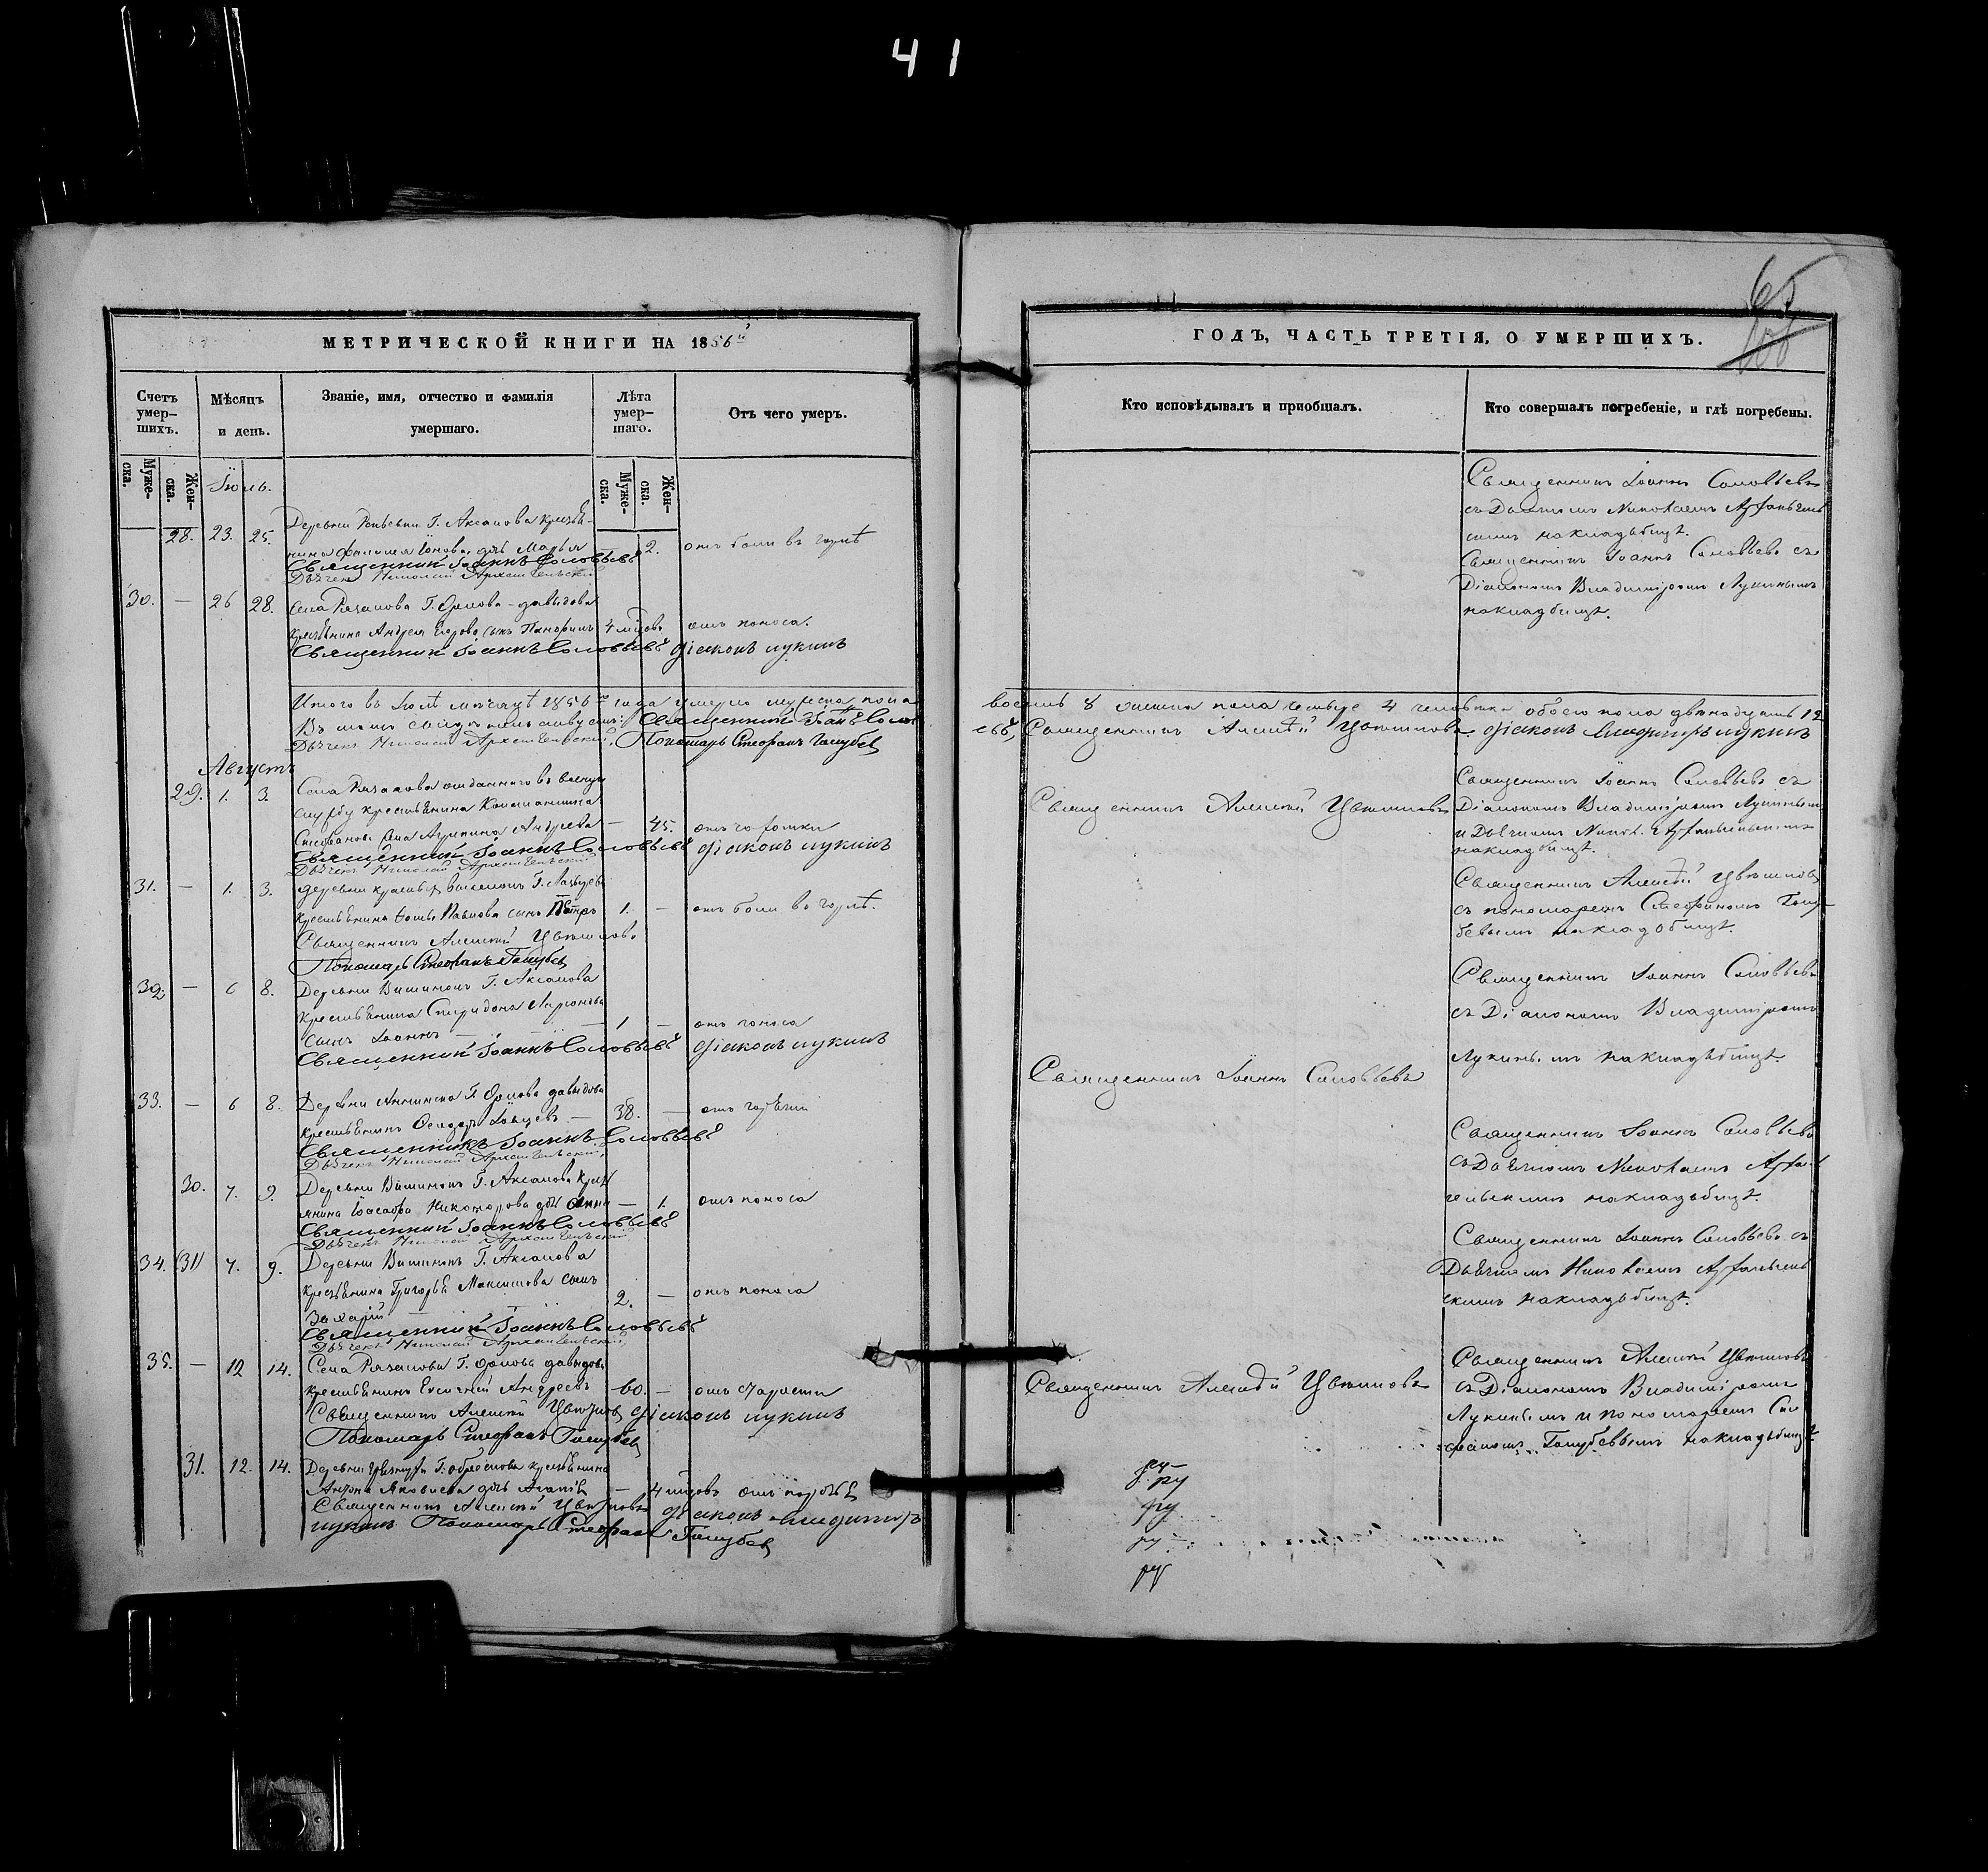 41
65
МЕТРИЧЕСКОЙ КНИГИ НА 1856й
Счетъ умер-
шихъ.
Мѣсяцъ
и день.
Званіе, имя, отчество и фамилія
умершаго.
Лѣта
умер-
шаго.
Отъ чего умеръ.
Муже-
ска.
Жен-
ска.
Муже-
ска.
Жен-
ска.
Іюль.
28. 23. 25. Деревни Г. Аксакова крестья-
нина Іонова дочь Марья 2. отъ боли въ горлѣ
Священникъ Іоаннъ Соловьевъ
Дьячекъ Николай Архангельскій
30. — 26 28. Села Рязанова Г. Орлова-Давыдова
крестьянина Андрея Егорова сынъ 4 мѣсяцовъ отъ поноса.
Священникъ Іоаннъ Соловьевъ Діаконъ Лукинъ
Итого въ Іюлѣ мѣсяцѣ 1856го года умерло мужеска пола
Въ томъ свидѣтельствуемъ: Священникъ Іоаннъ Соловь
Дьячекъ Николай Архангельскій, Пономарь Стефанъ Голубев
Августъ
29. 1. 3. Села Рязанова отданнаго въ военную
службу крестьянина Константина
жена Агрипина Андреева — 45. отъ чахотки
Священникъ Іоаннъ Соловьевъ Діаконъ Лукинъ
Дьячекъ Николай Архангельскій
31. — 1. 3. Деревни
крестьянина Павлова сынъ Петръ 1. — отъ боли въ горлѣ.
Священникъ Алексѣй Цвѣтковъ
Пономарь Стефанъ Голубев
32. — 6 8. Деревни Вишенокъ Г. Аксакова
крестьянина Спиридона Ларіонова
сынъ Іоаннъ — 1 — отъ поноса
Священникъ Іоаннъ Соловьевъ Діаконъ Лукинъ
33. — 6 8. Деревни Г. Орлова Давыдова
крестьянинъ — 38. — отъ горячки
Священникъ Іоаннъ Соловьевъ
Дьячекъ Николай Архангельскій
30. 7. 9. Деревни Вишенокъ Г. Аксакова кресть
янина Никонорова дочь Анна — 1. отъ поноса
Священникъ Іоаннъ Соловьевъ
Дьячекъ Николай Архангельскій
34. (31) 7. 9. Деревни Вишенокъ Г. Аксакова
крестьянина Григорья Максимова сынъ
Захарій 2. — отъ поноса
Священникъ Іоаннъ Соловьевъ
Дьячекъ Николай Архангельскій
35. — 12 14. Села Рязанова Г. Орлова Давыдова
крестьянинъ Андреевъ 60. — отъ старости
Священникъ Алексѣй Цвѣтковъ Діаконъ Лукинъ
Пономарь Стефанъ Голубев
31. 12. 14. Деревни крестьянина
Антона Яковлева дочь — 4 мѣсяцовъ отъ
Священникъ Алексѣй Цвѣтковъ Діаконъ Владимиръ
Лукинъ Пономарь Стефанъ Голубев
ГОДЪ, ЧАСТЬ ТРЕТІЯ, О УМЕРШИХЪ.
Кто исповѣдывалъ и пріобщалъ.
Кто совершалъ погребеніе, и гдѣ погребены.
Священникъ Іоаннъ Соловьевъ
съ Дьячкомъ Николаемъ Архангель
скимъ на кладбищѣ.
Священникъ Іоаннъ Соловьевъ съ
Діакономъ Владиміромъ Лукинымъ
на кладбищѣ.
восемь 8 женска пола четыре 4 человѣка обоего пола двѣнадцать 12
евъ, Священникъ Алексѣй Цвѣтковъ Діаконъ Владимиръ Лукинъ
Священникъ Алексѣй Цвѣтковъ
Священникъ Іоаннъ Соловьевъ съ
Діакономъ Владиміромъ Лукинымъ
и Дьячкомъ Никол. Архангельскимъ
на кладбищѣ.
Священникъ Алексѣй Цвѣтковъ
съ пономаремъ Стефаномъ Голу-
бевымъ на кладбищѣ.
Священникъ Іоаннъ Соловьевъ
съ Діакономъ Владиміромъ
Лукинымъ на кладбищѣ
Священникъ Іоаннъ Соловьевъ
Священникъ Іоаннъ Соловьевъ
съ Дьячкомъ Николаемъ Архан
гельскимъ на кладбищѣ.
Священникъ Іоаннъ Соловьевъ съ
Дьячкомъ Николаемъ Архангель
скимъ на кладбищѣ.
Священникъ Алексѣй Цвѣтковъ
Священникъ Алексѣй Цвѣтковъ
съ Діакономъ Владиміромъ
Лукинымъ и пономаремъ Сте
фаномъ Голубевымъ на кладбищѣ
ру
ру
ру
ру